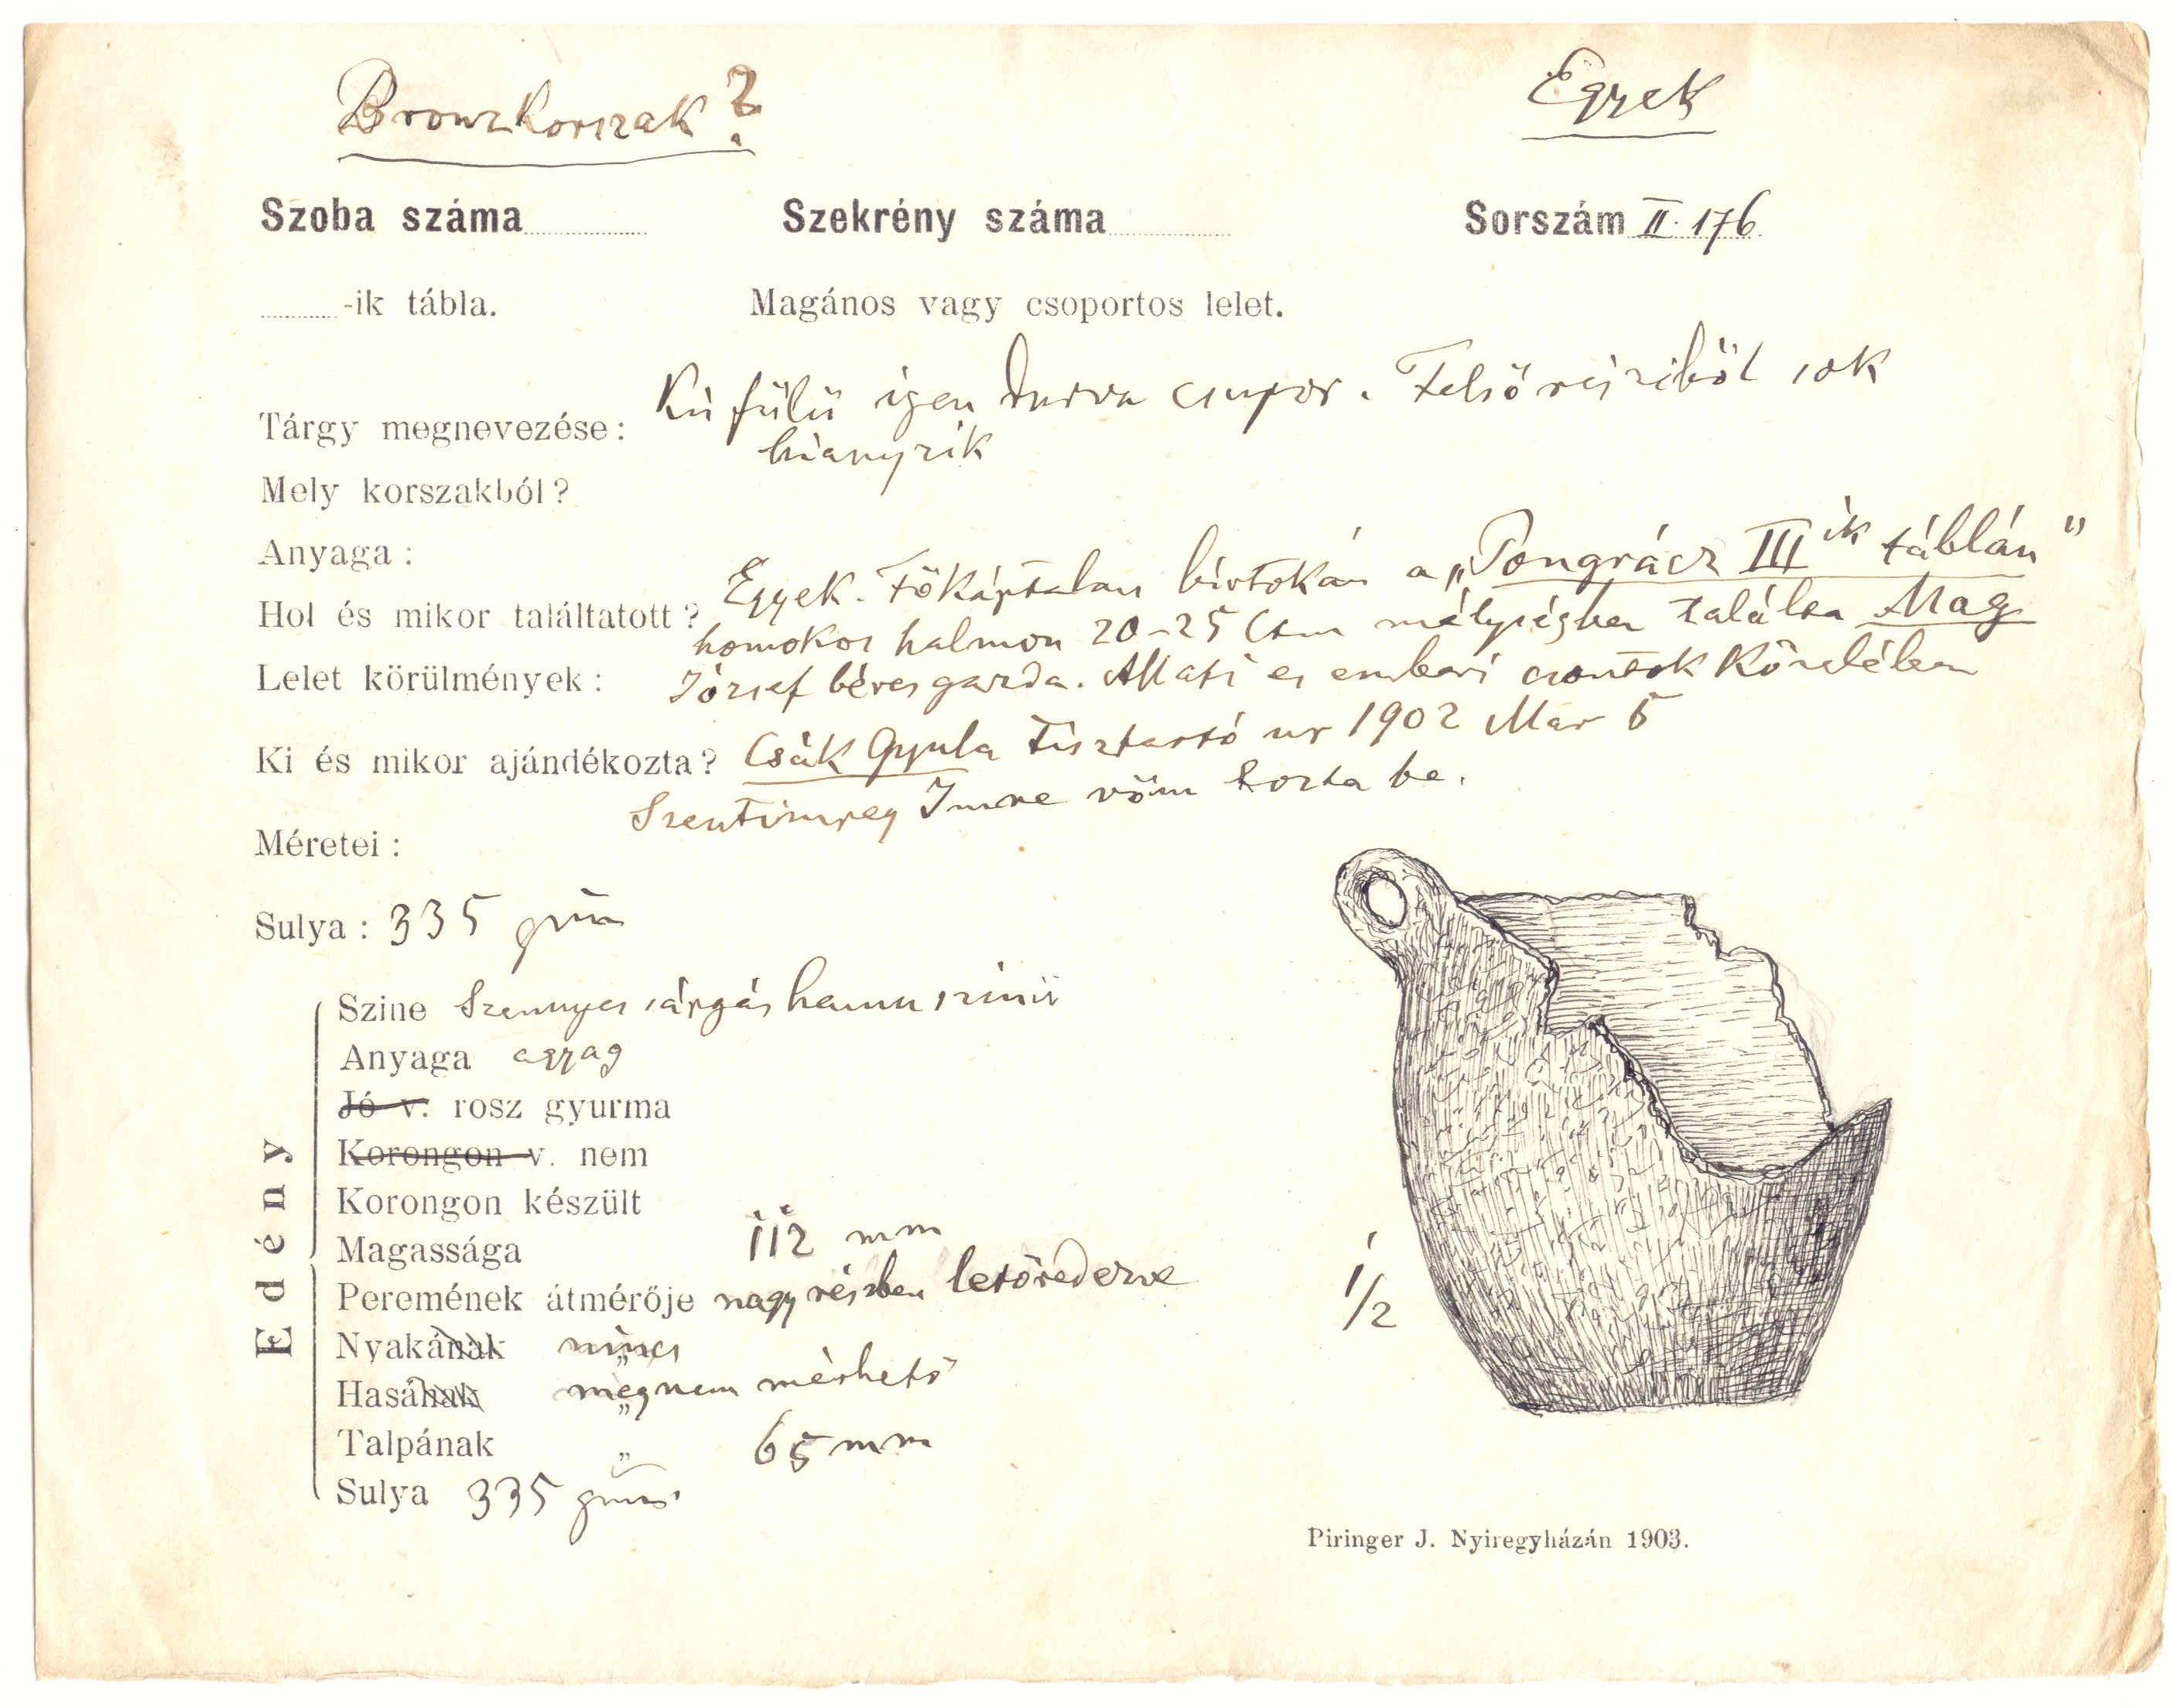 Bronzkorszak?
Egyek
Szoba száma
Szekrény száma
Sorszám II. 176
-ik tábla.
Magános vagy csoportos lelet.
Tárgy megnevezése: Kis fülü igen durva csupor. Felső résziböl sok
hianyzik
Mely korszakból?
Anyaga:
Hol és mikor találtatott? Egyek. Főkáptalan birtokán a „Pongrácz III ik táblán"
homokos halmon 20-25 Ctm mélységben találta Mag
Lelet körülmények: József béresgazda. Allati es emberi csontok közelében
Ki és mikor ajándékozta? Csák Gyula tisztartó ur 1902 Mar 5
Imre vöm hozta be.
Méretei:
Sulya: 335 grm
Edény
Szine Szennyes sárgás hamu szinü
Anyaga agyag
Jó v. rosz gyurma
Korongon v. nem
Korongon készült
Magassága 112 mm
Peremének átmérője nagy részben letöredezve
Nyakának „ nincs
Hasának „ megnem mérhető
Talpának „ 65 mm
Sulya 335 grm
1/2
Piringer J. Nyiregyházán 1903.